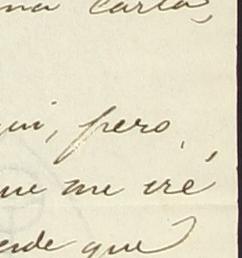 na carta,
qui, pero
que me iré
erde que